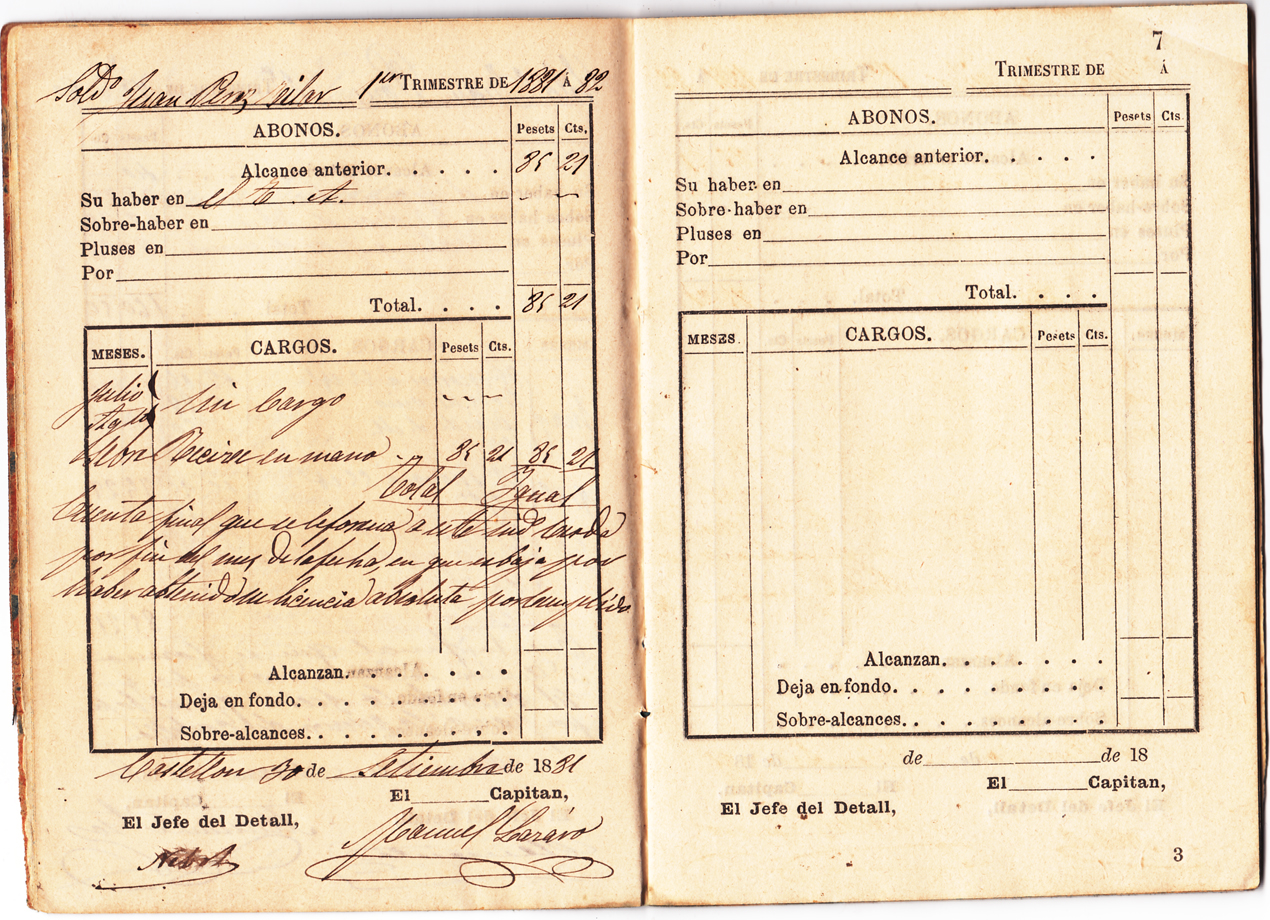 Sold.º Juan Perez Pilar 1er TRIMESTRE DE 1881 Á 82
ABONOS. Pesets Cts.
Alcance anterior. . . . . 85 21
Su haber en el t. A.
Sobre-haber en
Pluses en
Por
Total. . . . 85 21
MESES. CARGOS. Pesets Cts.
Julio
Agto Sin Cargo
Sebre Recive en mano 85 21 85 21
Total Igual
Cuenta final que se le forma a este
por fin del mes de la fecha, en que es baja por
haber obtenido su licencia absoluta por cumplido
Alcanzan. . . . . . .
Deja en fondo. . . . . . . .
Sobre-alcances. . . . . . . .
Castellon 30 de Setiembre de 1881
El Capitan,
El Jefe del Detall,
Manuel Lazaro
7
TRIMESTRE DE Á
ABONOS. Pesets Cts.
Alcance anterior. . . . .
Su haber en
Sobre-haber en
Pluses en
Por
Total. . . .
MESES. CARGOS. Pesets Cts.
Alcanzan. . . . . . .
Deja en fondo. . . . . . . .
Sobre-alcances. . . . . . . .
de de 18
El Capitan,
El Jefe del Detall,
3